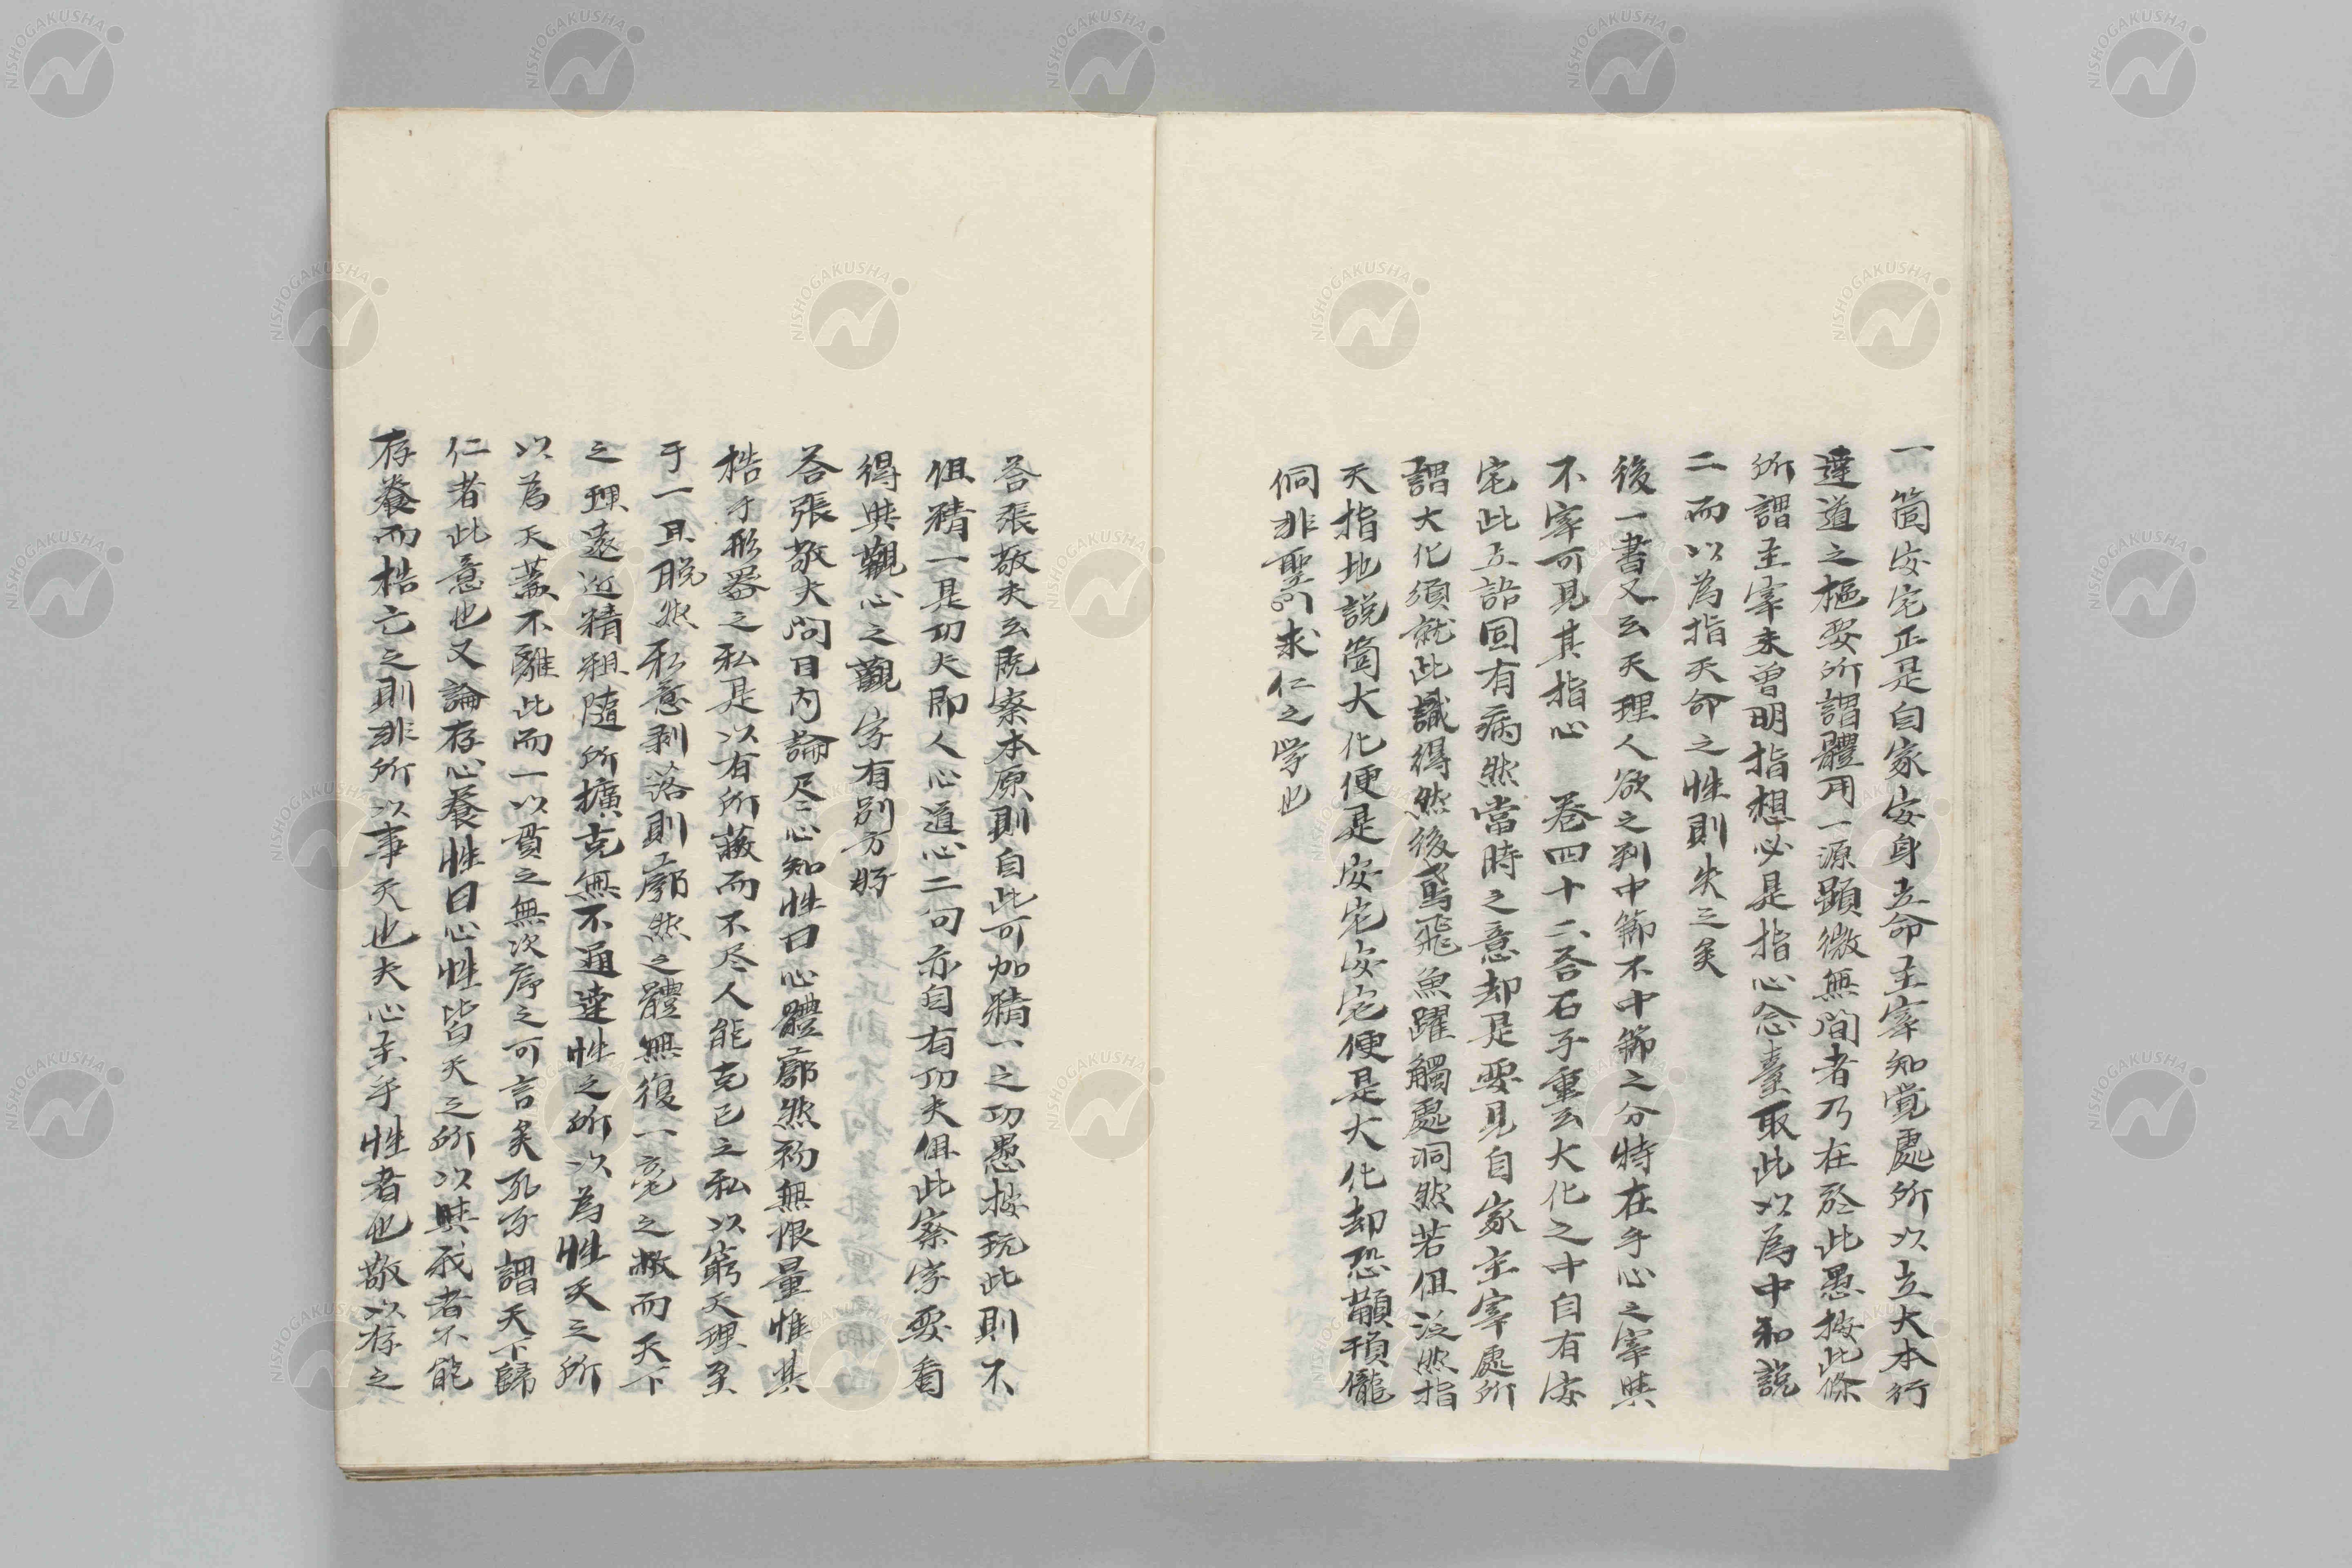 一箇安宅正是自家安身立命主宰知覚處所以立大本行
達道之樞要所謂體用一源顕微無間者乃在於此愚按此條
所謂主宰未曽明指想必是指心念臺取此以為中和説
二而以為指天命之性則失之矣
後一書又云天理人欲之判中節不中節之分特在乎心之宰與
不宰可見其指心　巻四十二荅石子重云大化之中自有安
宅此立語固有病然當時之意却是要見自家主宰處所
謂大化須就此識得然後鳶飛魚躍觸處洞然若但泛然指
天指地説箇大化便是安宅安宅便是大化却恐顢頇儱
侗非聖門求仁之学也
荅張敬夫云既察本原則自此可加精一之功愚按玩此則不
但精一是功夫即人心道心二句亦自有功夫俱此察字要看
得與觀心之觀字有別方好
荅張敬夫問目内論尽心知性曰心體廓然初無限量惟其
梏于形器之私是以有所蔽而不尽人能克已之私以窮天理至
于一旦脱然私意剥落則廓然之體無復一毫之蔽而天下
之理遠近精粗隨所擴充無不通達性之所以為性天之所
以為天蓋不離此而一以貫之無次序之可言矣孔子謂天下歸
仁者此意也又論存心養性曰心性皆天之所以與我者不能
存養而梏亡之則非所以事天也夫心主乎性者也敬以存之